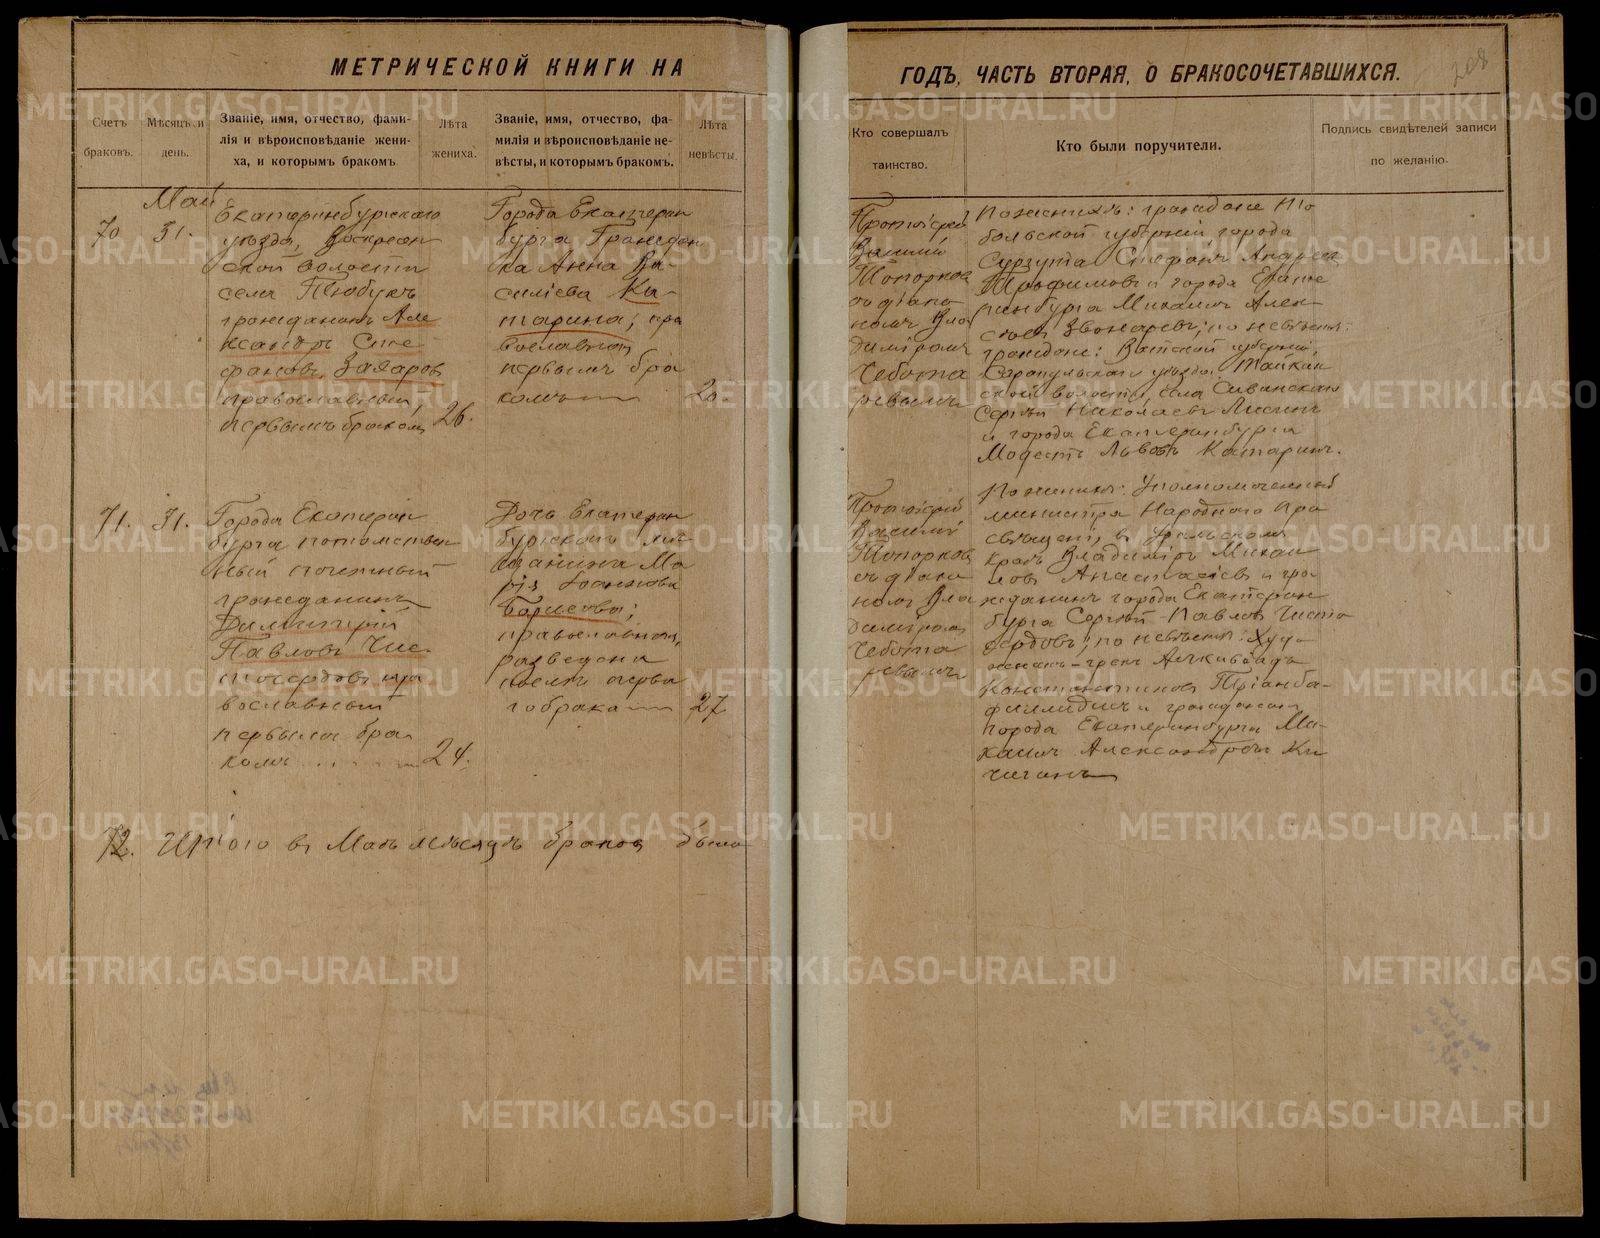 МЕТРИЧЕСКОЙ КНИГИ НА
ГОДЪ, ЧАСТЬ ВТОРАЯ, О БРАКОСОЧЕТАВШИХСЯ.
208
Счетъ браковъ.
Мѣсяцъ и день.
Званіе, имя, отчество, фами-
лія и вѣроисповѣданіе жени-
ха, и которымъ бракомъ
Лѣта
жениха.
Званіе, имя, отчество, фа-
милія и вѣроисповѣданіе не-
вѣсты, и которымъ бракомъ.
Лѣта
невѣсты.
Кто совершалъ
таинство.
Кто были поручители.
Подпись свидѣтелей записи
по желанію.
Май
70
31.
Екатеринбургскаго
уѣзда, Воскресен
ской волости
села Тюбукъ
гражданинъ Але
ксандръ Сте
фановъ Захаровъ
православный,
первымъ бракомъ
26.
Города Екатерин
бурга Граждан
ка Анна Ва-
силіева Ка-
тарина, пра
вославная
первымъ бра
комъ
20.
Протоіерей
Василий
Топорковъ
съ діако
номъ Вла
диміромъ
Чебота
ревымъ
По женихѣ: граждане То
больской губерніи города
Сургута Стефанъ Андреев
Трофимовъ и города Екате
ринбурга Михаилъ Алек-
сѣевъ Звонаревъ; по невѣстѣ:
граждане: Вятской губерніи,
Сарапульскаго уѣзда,
ской волости, села Сивинскаго
Сергѣй Николаевъ Лисинъ
и города Екатеринбурга
Модестъ Львовъ Катаринъ.
71.
31.
Города Екатерин
бурга потомствен
ный почетный
гражданинъ
Димитрій
Павловъ Чис-
тосердовъ пра
вославный
первымъ бра
комъ
24.
Дочь Екатерин
бургскаго мѣ
щанина Ма
рія Іоаннова
православная,
разведена
послѣ перва
го брака
27
Протоіерей
Василій
Топорковъ
съ діако
номъ Вла
диміромъ
Чебота
ревымъ
По женихѣ: Уполномоченный
министра Народнаго Про
свѣщенія, въ Уральскомъ
краѣ Владиміръ Михаи
ловъ Анастасіевъ и гра
жданинъ города Екатерин
бурга Сергѣй Павловъ Чисто
сердовъ; по невѣстѣ: Худо-
жникъ-грекъ Алкивіадъ
Константиновъ Тріанда-
филидисъ и гражданинъ
города Екатеринбурга Ми-
хаилъ Александровъ Ки
чигинъ
72.
Итого въ Маѣ мѣсяцѣ браковъ было
METRIKI.GASO-URAL.RU